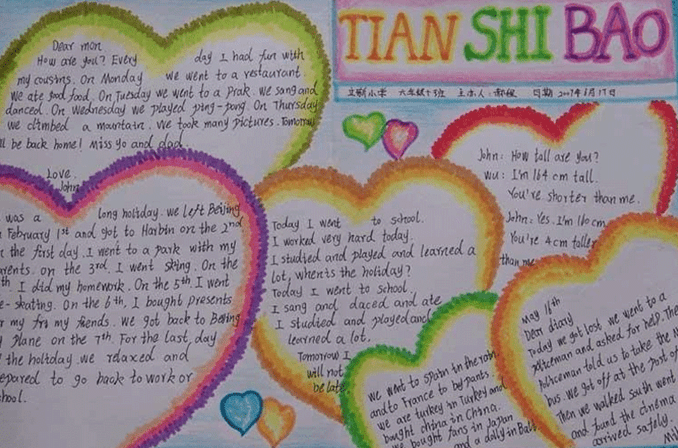 TIAN SHI BAO
日期
Dear mon
How are you? Every day I had fun with
my cousins. On Monday we went to a restaurant.
We ate good food. On Tuesday we went to a prak. We sang and
danced. On Wednesday we played ping-pong. On Thursday
we climbed a mountain. We took many pictures. Tomorrow
ll be back home! Miss yo and dad.
Love.
John
was a long holiday. we left Beijing
February 1st and got to Harbin on the 2nd
the first day. I went to a park with my
rents. on the 3rd I went sking. On the
th I did my homework. On the 5th I went
e-skating. On the 6th, I bought presents
my friends. we got back to Beijing
plane on the 7th. For the last day
the holiday we rdaxed and
epared to go back to work or
hool.
Today I went to school.
I worked very hard today.
I studied and played and learned a
lot, when's the holiday?
Today I went to school
I sang and daced and ate
I studied and played and
learned a lot.
Tomorrow I
will not
be late
John: How tall are you?
wu: I'm 164 cm tall.
You're shorter than me.
John: Yes. I'm 160 cm
You're 4 cm taller
than me
we went to Spain in the rain
and to France to by pants.
we are turkey in Turkey and
bught china in China.
we bought fans in Japan
and a dolly in Bali
May 16th
Dear diary
Today we got lost. we went to a
policeman and asked for help. The
policeman told us to take the
bus. we got off at the post of
Then we walked south went
and found the cinema
arrived safely.